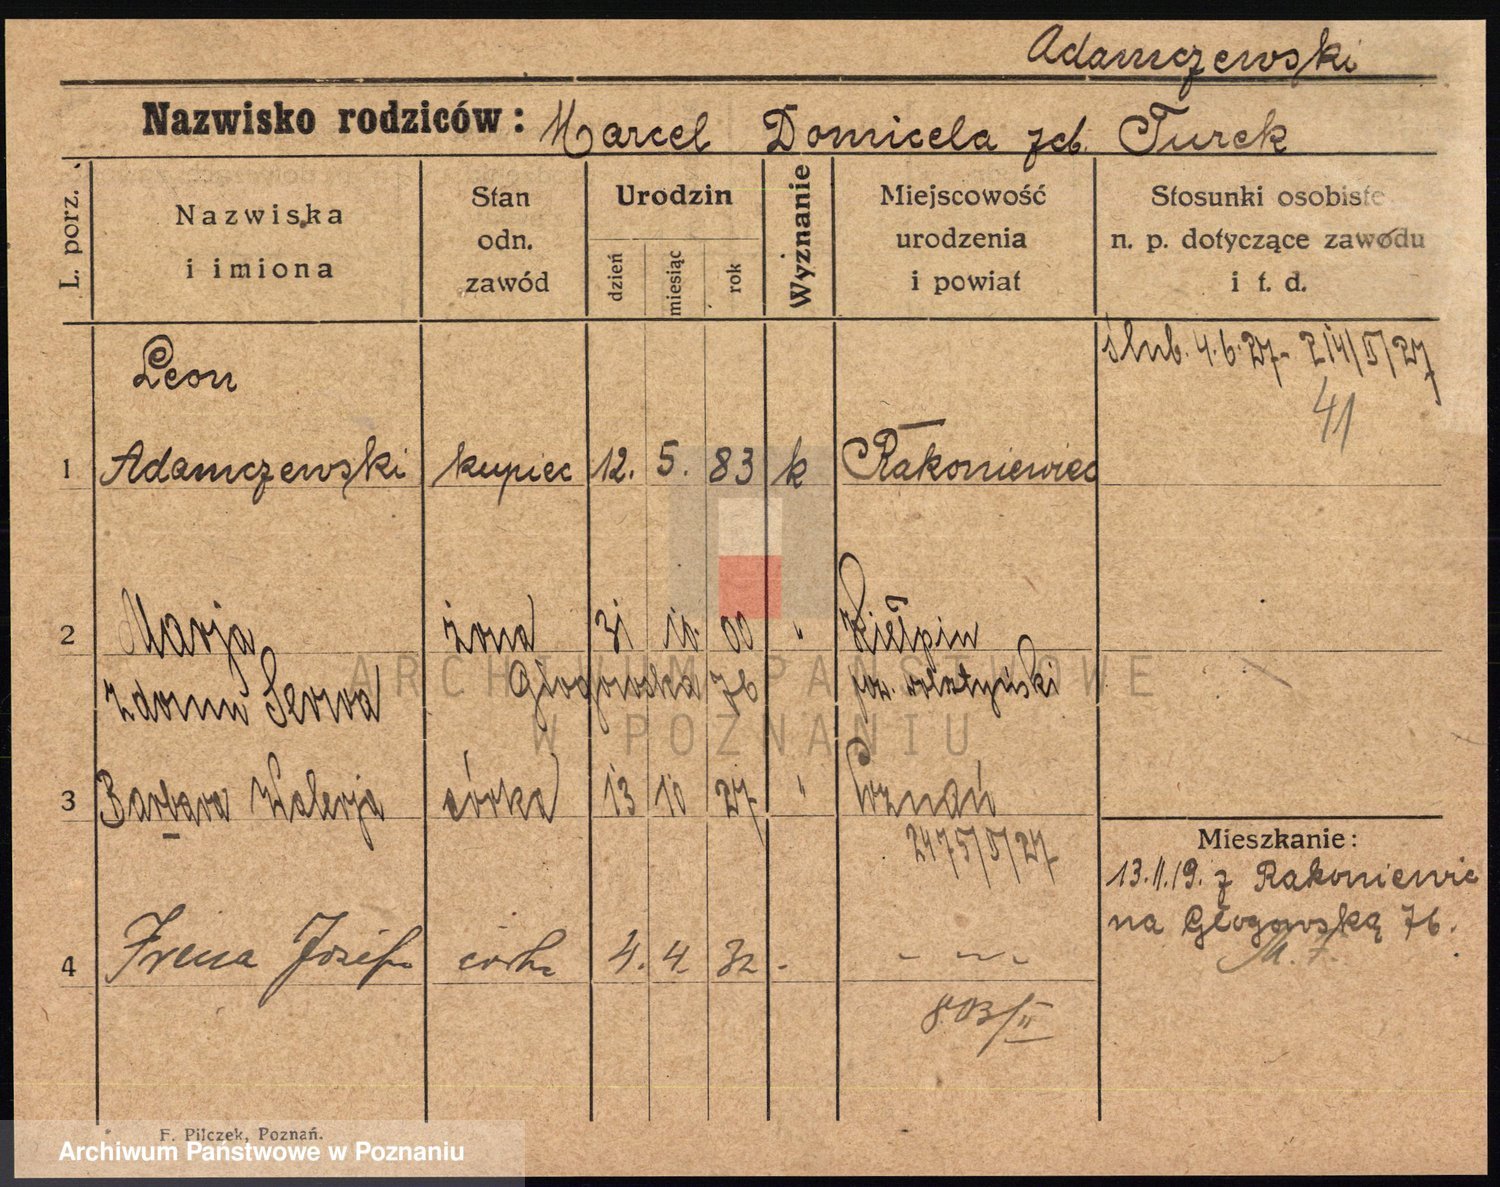 Adamczewski
Nazwisko rodziców: Marcel Domicela zeb. Turek
L. porz.
Nazwiska
i imiona
Stan
odn.
zawód
Urodzin
dzień
miesiąc
rok
Wyznanie
Miejscowość
urodzenia
i powiat
Stosunki osobiste
n. p. dotyczące zawodu
i t. d.
ślub. 4.6.27 - 214/II/27
41
Leon
1 Adamczewski kupiec 12. 5. 83 k Rakoniewiec
2 Marja żona 31 10. 00 " Kiełpin
zdomu Głogowska 76
3 Barbara Walerja córka 13 10 27 " Poznań
2475/II/27
Mieszkanie:
13.II.19. z Rakoniewic
na Głogowską 76.
4 Irena Józefa córka 4. 4. 32 - - -
803/II
ARCHIWUM PAŃSTWOWE
W POZNANIU
F. Pilczek, Poznań.
Archiwum Państwowe w Poznaniu